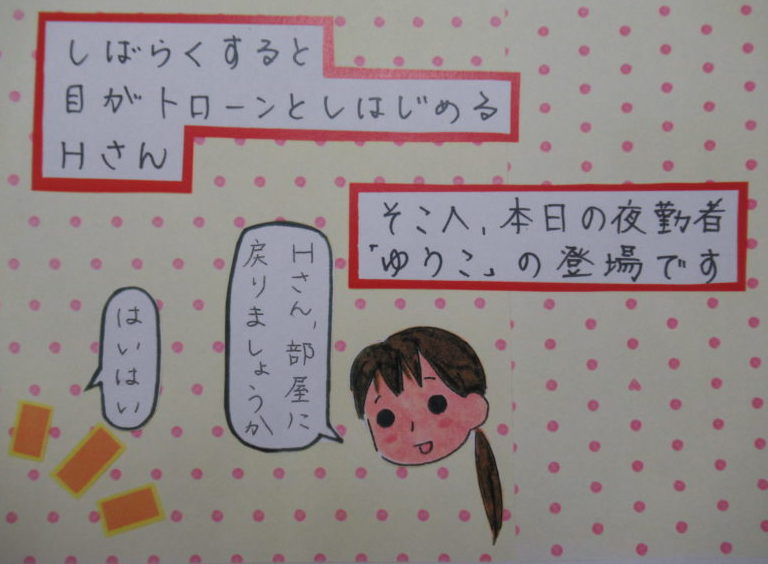 しばらくすると
目がトローンとしはじめる
Hさん
そこへ、本日の夜勤者
「ゆりこ」の登場です
Hさん、部屋に
戻りましょうか
はいはい